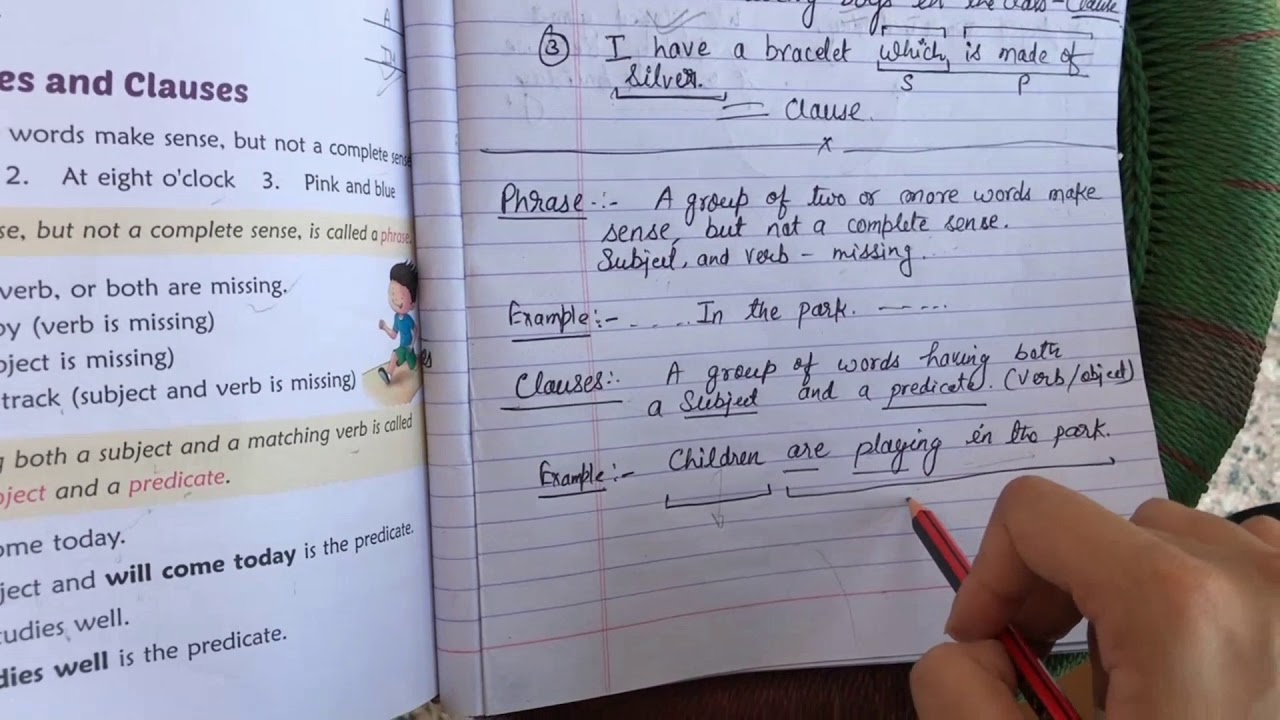 es and Clauses
words make sense, but not a complete sense
2. At eight o'clock 3. Pink and blue
se, but not a complete sense, is called a phrase.
verb, or both are missing.
oy (verb is missing)
ject is missing)
track (subject and verb is missing)
g both a subject and a matching verb is called
bject and a predicate.
ome today.
ject and will come today is the predicate.
tudies well.
dies well is the predicate.
boys in the class - Clause
③ I have a bracelet which is made of
Silver.
S P
= Clause.
x
Phrase :- A group of two or more words make
sense, but not a complete sense.
Subject, and verb - missing.
Example :- .... In the park. -----
Clauses :- A group of words having both
a Subject and a predicate. (Verb/object)
Example :- Children are playing in the park.